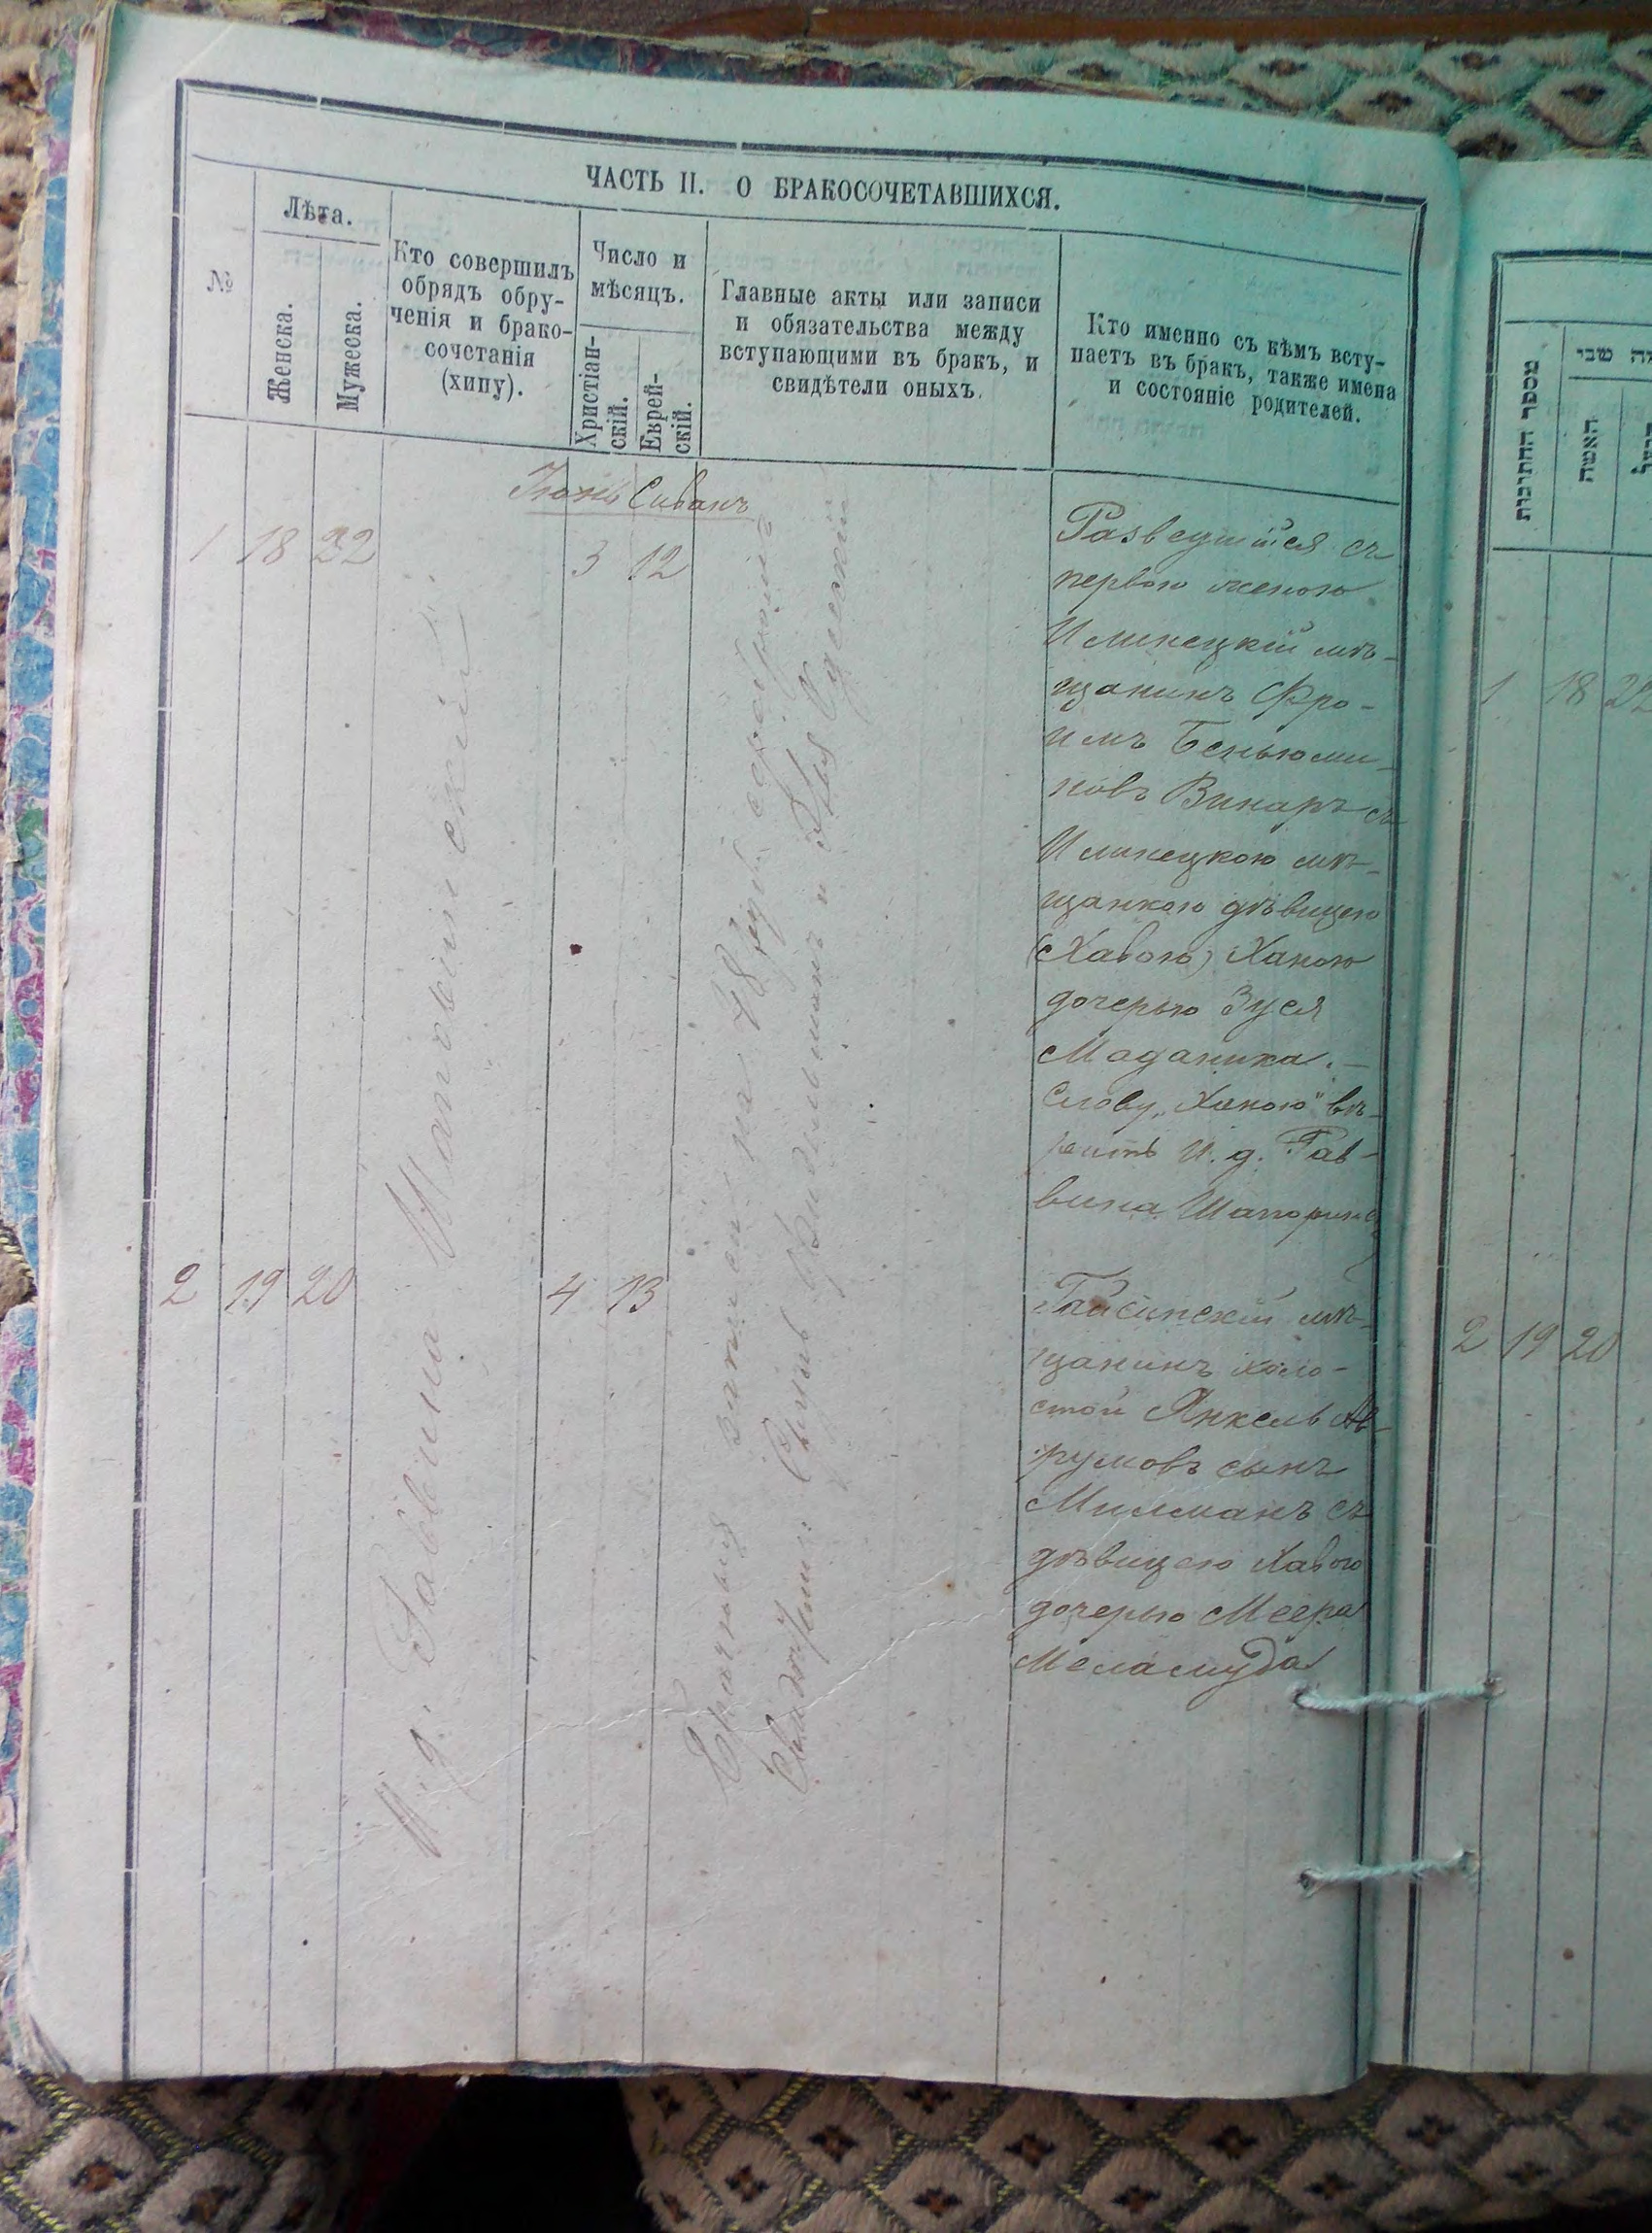 ЧАСТЬ II. О БРАКОСОЧЕТАВШИХСЯ.
№
Лѣта.
Женска.
Мужеска.
Кто совершилъ
обрядъ обру-
ченія и брако-
сочетанія
(хипу).
Число и
мѣсяцъ.
Христіан-
скій.
Еврей-
скій.
Главные акты или записи
и обязательства между
вступающими въ бракъ, и
свидѣтели оныхъ.
Кто именно съ кѣмъ всту-
паетъ въ бракъ, также имена
и состояніе родителей.
Іюнь Сиванъ
1 18 22
3 12
И. д. Раввина
Брачныя записи на 48 руб. серебромъ
Свидѣтели:
Разведшійся съ
первою женою
Илинецкій мѣ-
щанинъ Фро-
имъ Беньюми-
новъ Винаръ съ
Илинецкою мѣ-
щанкою дѣвицею
(Хавою) Ханою
дочерью Зуся
Маданика. —
Слову „Ханою" вѣ-
рить И. д. Рав-
вина
2 19 20
4 13
Гайсинскій мѣ-
щанинъ холо-
стой Янкель Ав-
румовъ сынъ
Милманъ съ
дѣвицею Хавою
дочерью Меера
Меламуда
מספר החתונות
האשה
1 18 22
2 19 20